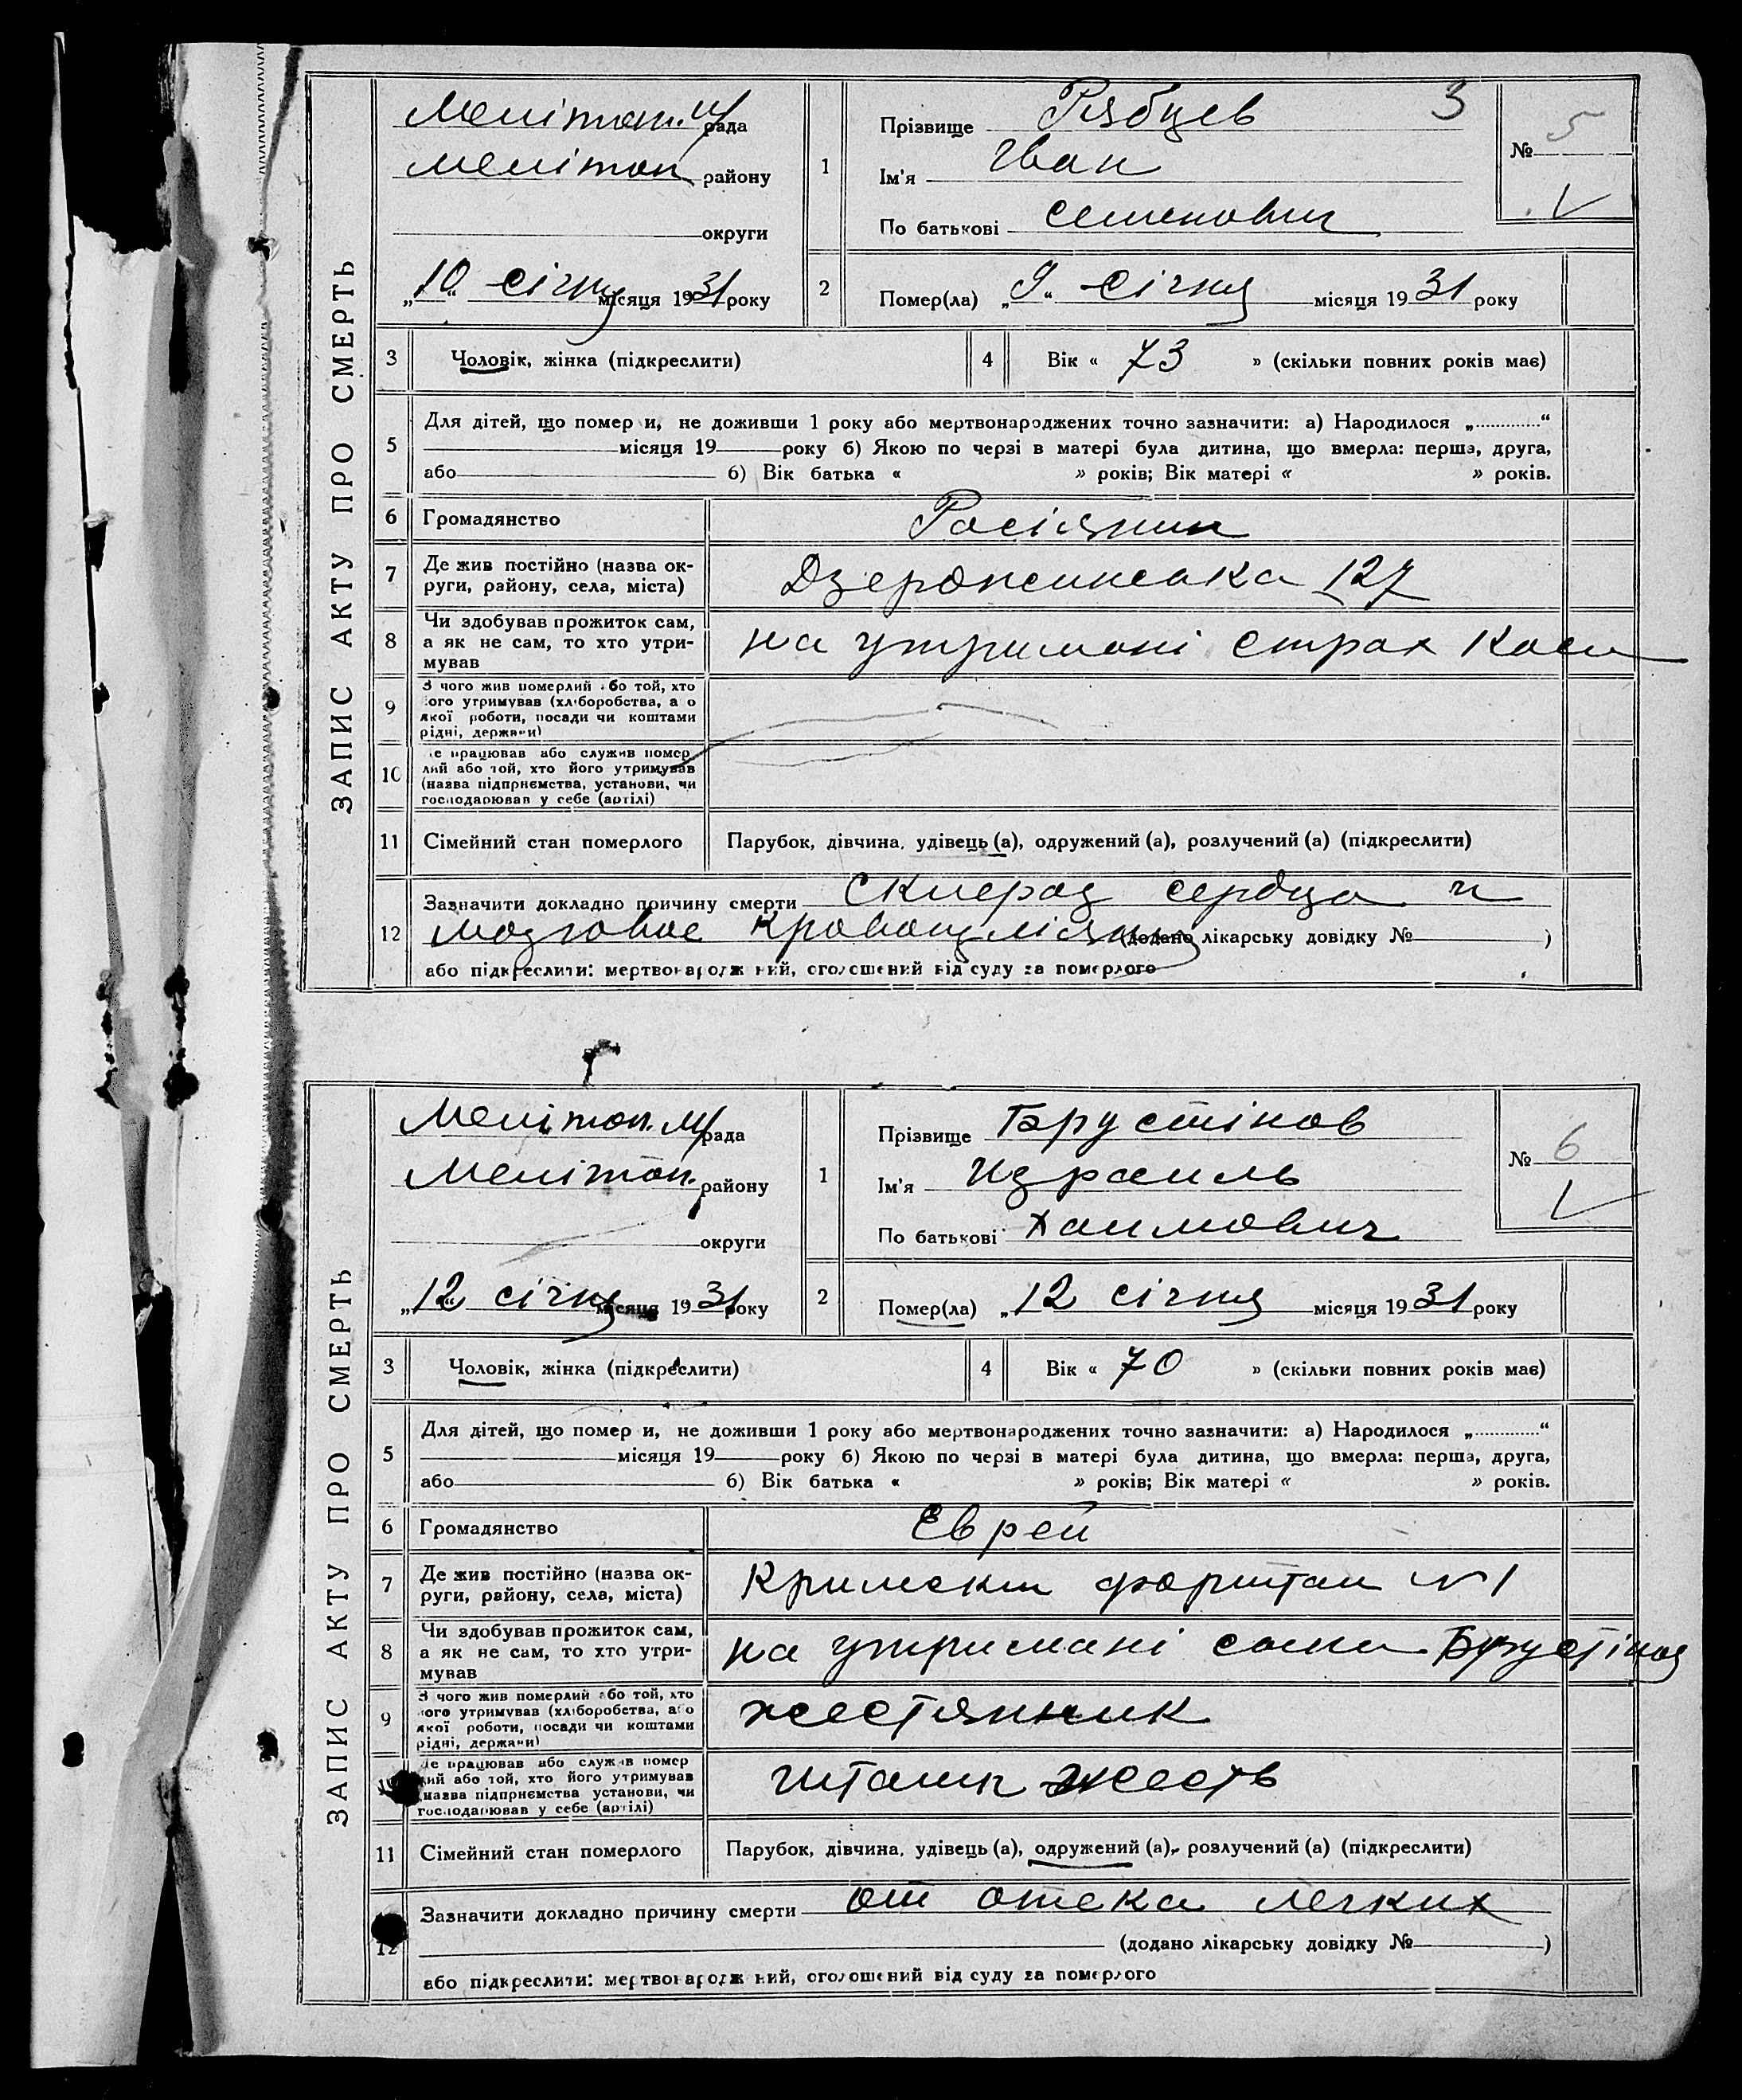 ЗАПИС АКТУ ПРО СМЕРТЬ
Мелітоп. м/рада
Мелітоп району
округи
„10“ січня місяця 1931 року
1
Прізвище Рябцев 3
Ім'я Иван
По батькові Семенович
№ 5
2
Помер(ла) „9“ січня місяця 1931 року
3 Чоловік, жінка (підкреслити)
4 Вік « 73 » (скільки повних років має)
5 Для дітей, що помер и, не доживши 1 року або мертвонароджених точно зазначити: а) Народилося „............“
місяця 19 року б) Якою по черзі в матері була дитина, що вмерла: перша, друга,
або б) Вік батька « » років; Вік матері « » років.
6 Громадянство Росіянин
7 Де жив постійно (назва ок-
руги, району, села, міста)
Дзержинська 127
8 Чи здобував прожиток сам,
а як не сам, то хто утри-
мував
на утримані страх каси
9 З чого жив померлий або той, хто
його утримував (хліборобства, або
якої роботи, посади чи коштами
рідні, держави)
10 Де працював або служив помер
лий або той, хто його утримував
(назва підприємства, установи, чи
господарював у себе (артілі)
11 Сімейний стан померлого Парубок, дівчина, удівець (а), одружений (а), розлучений (а) (підкреслити)
12 Зазначити докладно причину смерти Склероз сердца и
мозговое (додано лікарську довідку № )
або підкреслити: мертвонародж ний, оголошений від суду за померлого
ЗАПИС АКТУ ПРО СМЕРТЬ
Мелітоп. м/рада
Мелітоп. району
округи
„12“ січня місяця 1931 року
1
Прізвище Брустінов
Ім'я Израиль
По батькові Хаимович
№ 6
2
Помер(ла) „12 січня місяця 1931 року
3 Чоловік, жінка (підкреслити)
4 Вік « 70 » (скільки повних років має)
5 Для дітей, що помер и, не доживши 1 року або мертвонароджених точно зазначити: а) Народилося „............“
місяця 19 року б) Якою по черзі в матері була дитина, що вмерла: перша, друга,
або б) Вік батька « » років; Вік матері « » років.
6 Громадянство Еврей
7 Де жив постійно (назва ок-
руги, району, села, міста)
Кримски форштат № 1
8 Чи здобував прожиток сам,
а як не сам, то хто утри-
мував
на утримані сина
9 З чого жив померлий або той, хто
його утримував (хліборобства, або
якої роботи, посади чи коштами
рідні, держави)
жестянник
Де працював або служив помер
лий або той, хто його утримував
(назва підприємства установи, чи
господарював у себе (артілі)
жесть
11 Сімейний стан померлого Парубок, дівчина, удівець (а), одружений (а), розлучений (а) (підкреслити)
12 Зазначити докладно причину смерти от отека легких
(додано лікарську довідку № )
або підкреслити: мертвонародж ний, оголошений від суду за померлого